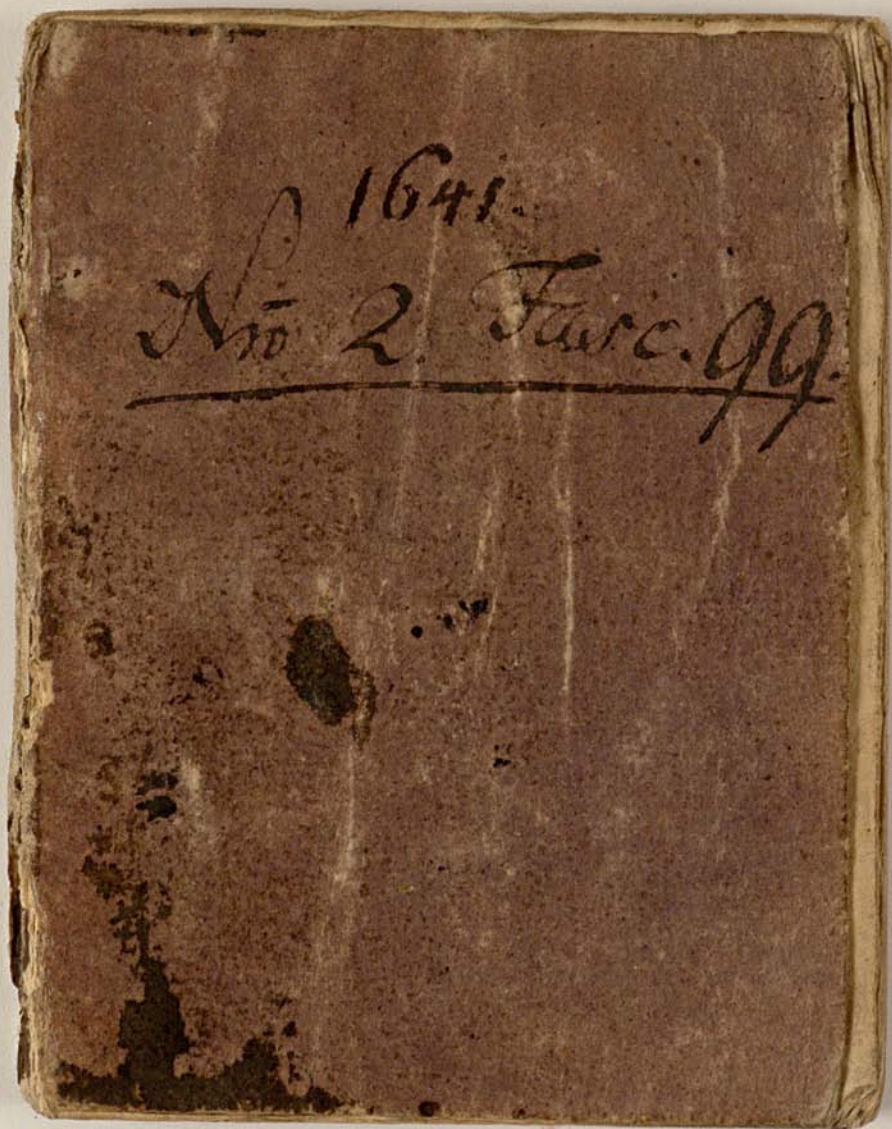 1641.
Nrō 2. Fasc. 99.